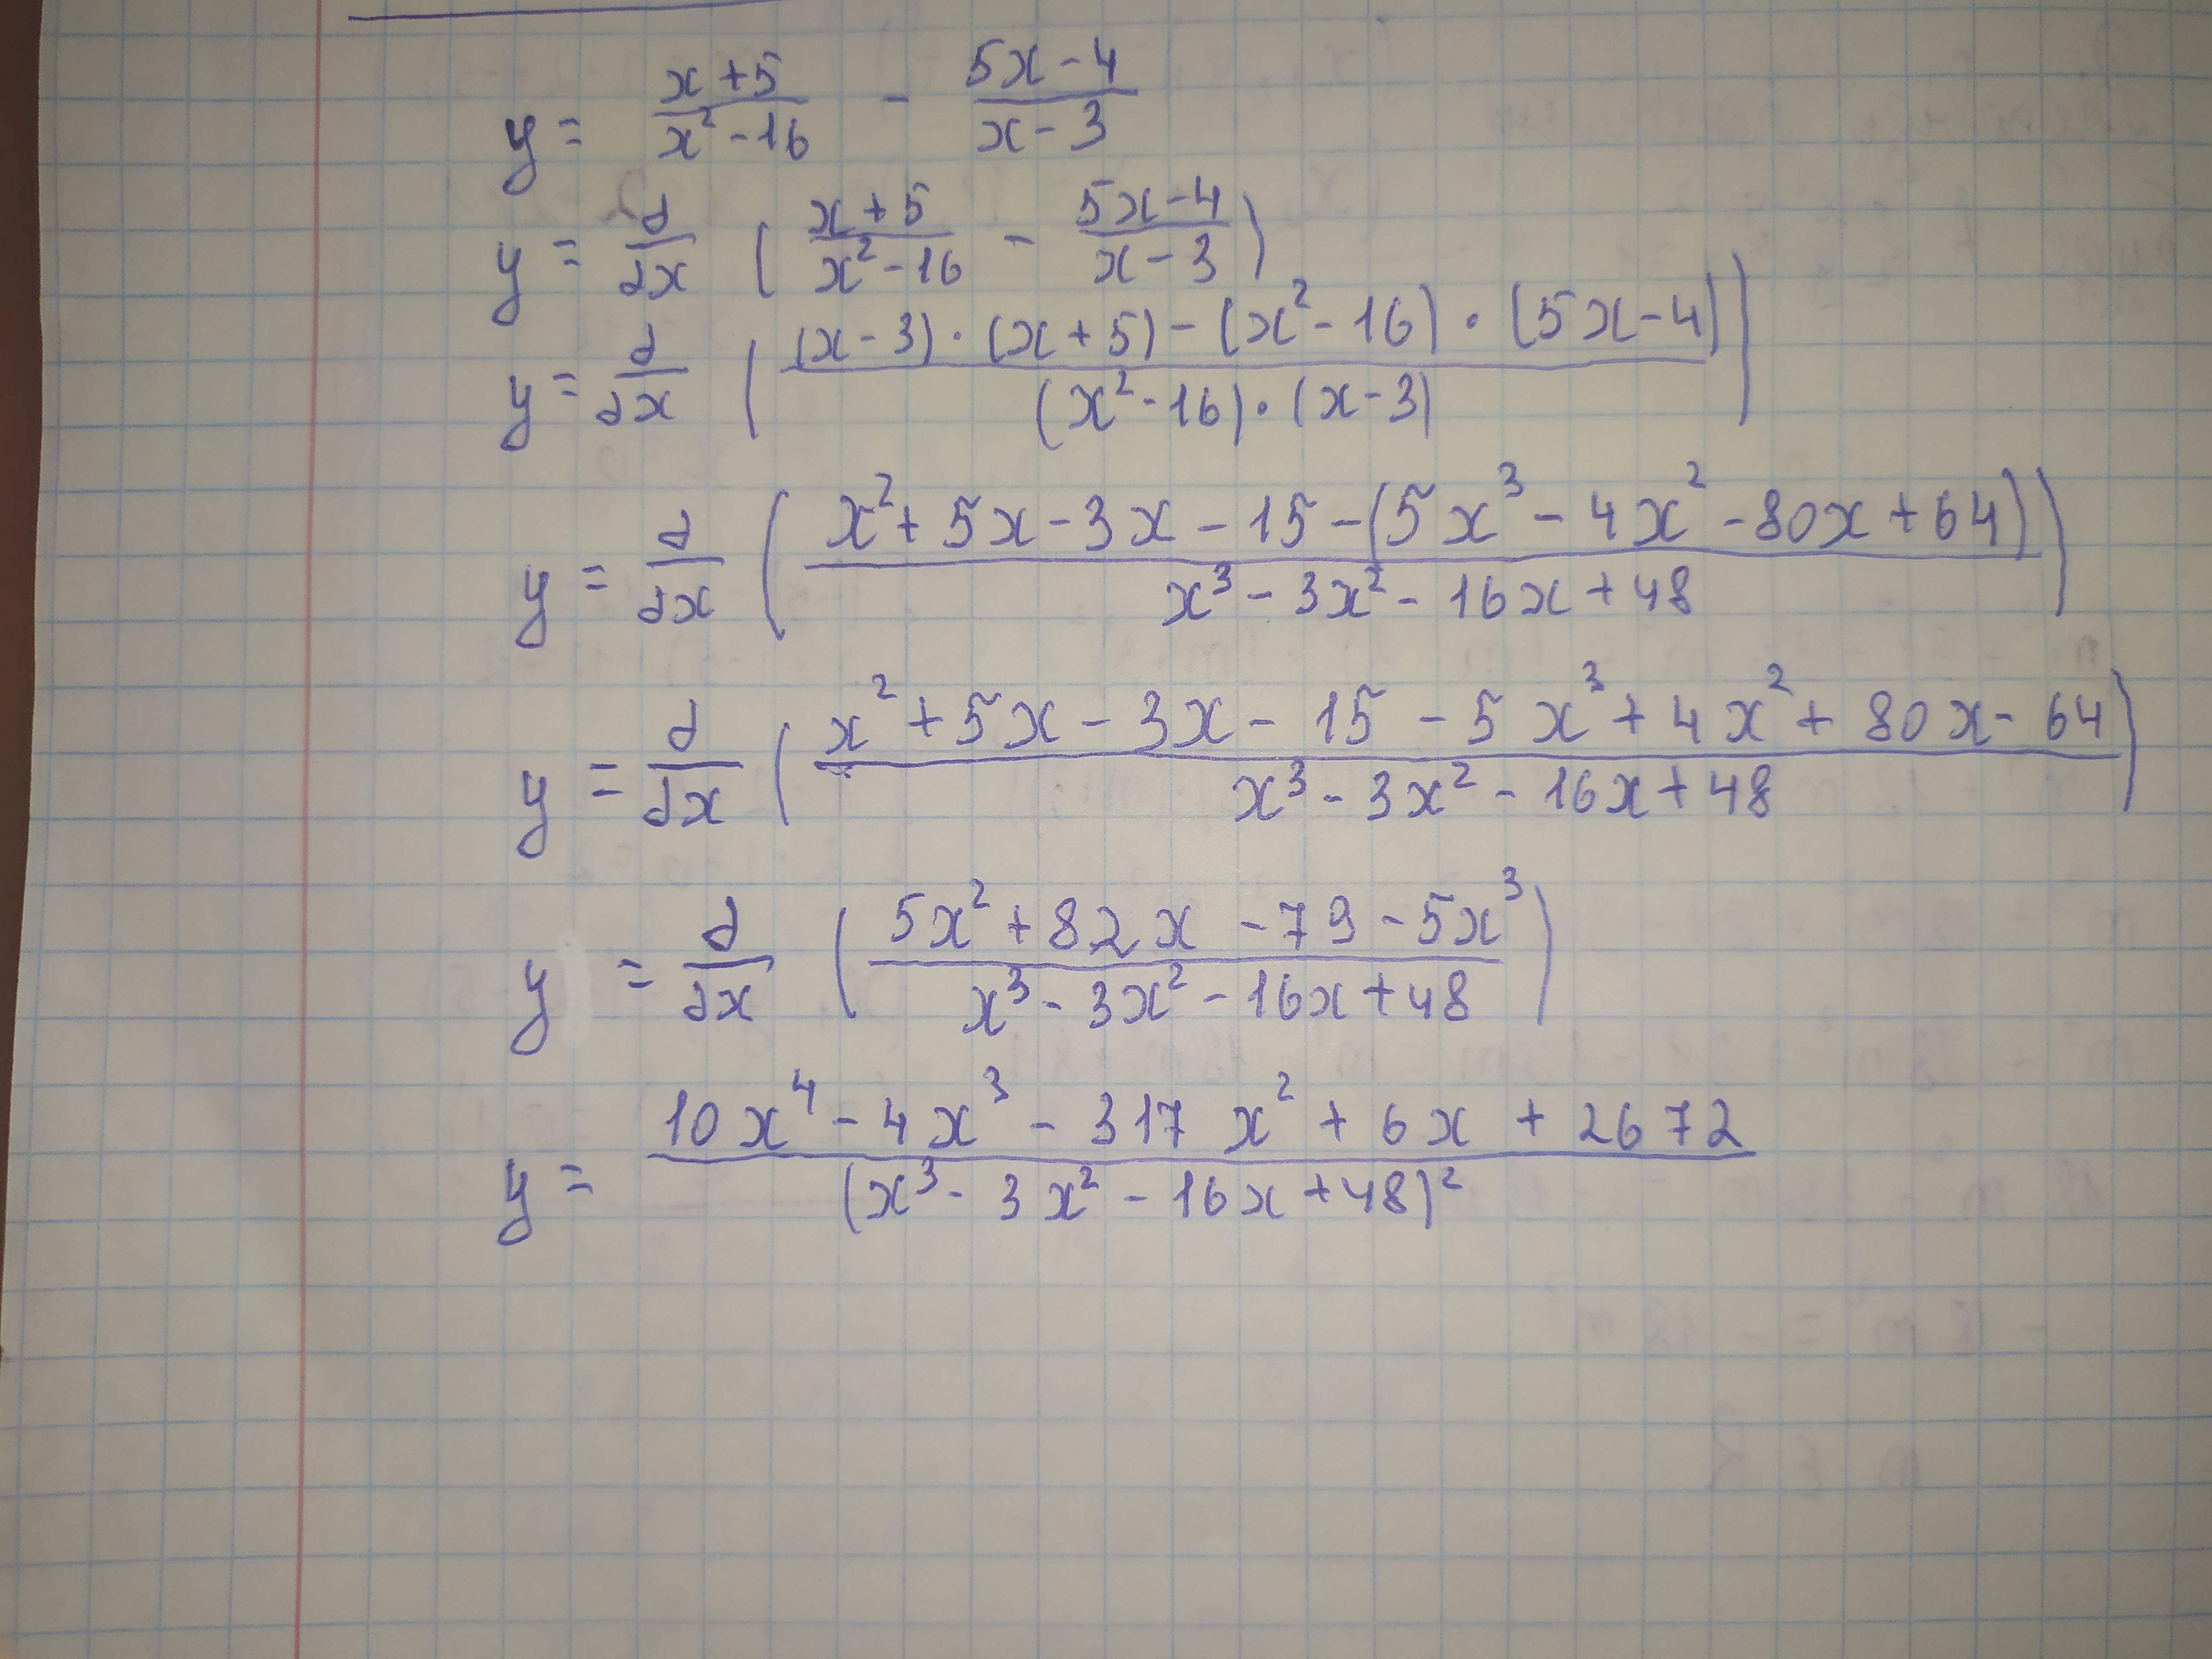 y = (x+5)/(x²-16) - (5x-4)/(x-3)
y = d/dx ( (x+5)/(x²-16) - (5x-4)/(x-3) )
y = d/dx ( ((x-3)·(x+5)-(x²-16)·(5x-4))/((x²-16)·(x-3)) )
y = d/dx ( (x²+5x-3x-15-(5x³-4x²-80x+64))/(x³-3x²-16x+48) )
y = d/dx ( (x²+5x-3x-15-5x³+4x²+80x-64)/(x³-3x²-16x+48) )
y = d/dx ( (5x²+82x-79-5x³)/(x³-3x²-16x+48) )
y = (10x⁴-4x³-317x²+6x+2672)/(x³-3x²-16x+48)²